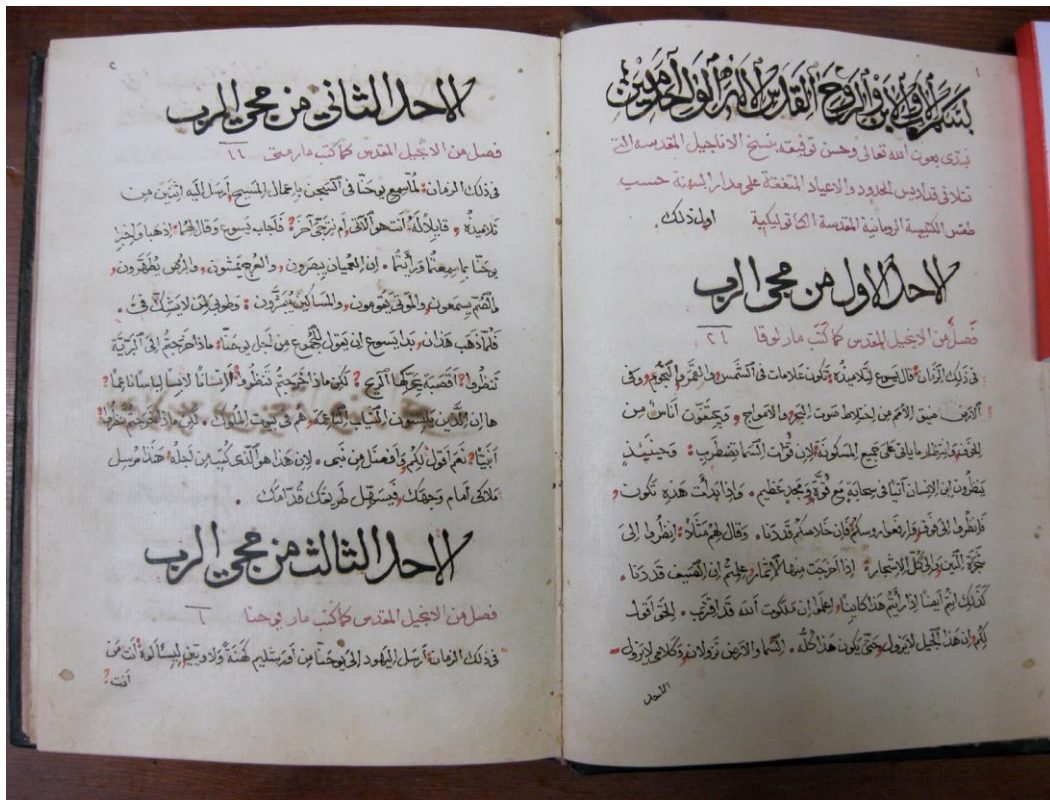 ١
بسم الآب والابن والروح القدس الاله الواحد امين
نبتدى بعون الله تعالى وحسن توفيقه بنسخ الاناجيل المقدسه التى
تتلا فى قداديس الحدود والاعياد المتفقة على مدار السنة حسب
طقس الكنيسة الرومانية المقدسة الكاتوليكية اول ذلك
الاحد الاول من مجى الرب
فصل من الانجيل المقدس كما كتب مار لوقا ٢٦
فى ذلك الزمان قال يسوع لتلاميذه تكون علامات فى الشمس والقمر والنجوم وفى
الارض ضيق الامم من اختلاط صوت البحر والامواج وتخفق اناس من
الخوف وانتظار ما ياتى على جميع المسكونة لان قوات السما تضطرب وحينيذ
ينظرون ابن الانسان آتيا فى سحابة مع قوة ومجد عظيم واذا بدأت هذه تكون
فانظروا الى فوق وارفعوا روسكم فان خلاصكم قد دنا وقال لهم مثلا انظروا الى
شجرة التين والى كل الاشجار اذا اخرجت منها الاثمار علمتم ان الصيف قد دنا
كذلك انتم ايضا اذا رأيتم هذا كاينا اعلموا ان ملكوت الله قد اقترب الحق اقول
لكم ان هذا الجيل لا يزول حتى يكون هذا كله السما والارض تزولان وكلامى لا يزول
الاحد
٢
الاحد الثانى من مجى الرب
فصل من الانجيل المقدس كما كتب مار متى ١١
فى ذلك الزمان لما سمع يوحنا فى السجن باعمال المسيح ارسل اليه اثنين من
تلاميذه قايلا له انت هو الآتى ام نرتجى آخر فاجاب يسوع وقال لهما اذهبا واخبرا
يوحنا بما سمعتما ورأيتما ان العميان يبصرون والعرج يمشون والبرص يطهرون
والصم يسمعون والموتى يقومون والمساكين يبشرون وطوبى لمن لا يشك فى
فلما ذهب هذان بدا يسوع ان يقول للجموع من اجل يوحنا ماذا خرجتم الى البرية
تنظروا أقصبة يحركها الريح لكن ماذا خرجتم تنظروا أانسانا لابسا لباسا ناعما
ها ان الذين يلبسون الثياب الناعمة هم فى بيوت الملوك لكن ماذا خرجتم تنظروا
أنبيا نعم اقول لكم وافضل من نبى لان هذا هو الذى كتب من اجله هذا مرسل
ملاكى امام وجهك فيسهل طريقك قدامك
الاحد الثالث من مجى الرب
فصل من الانجيل المقدس كما كتب مار يوحنا ١
فى ذلك الزمان ارسل اليهود الى يوحنا من اورشليم كهنة ولاويين ليسألوه انت من
انت